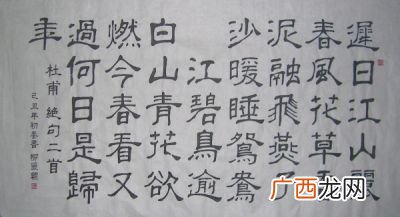 遲日江山麗
春風花草
泥融飛燕子
沙暖睡鴛鴦
江碧鳥逾
白山青花欲
燃今春看又
過何日是歸
年
杜甫 絕句二首
己丑年初冬書
广西龙网